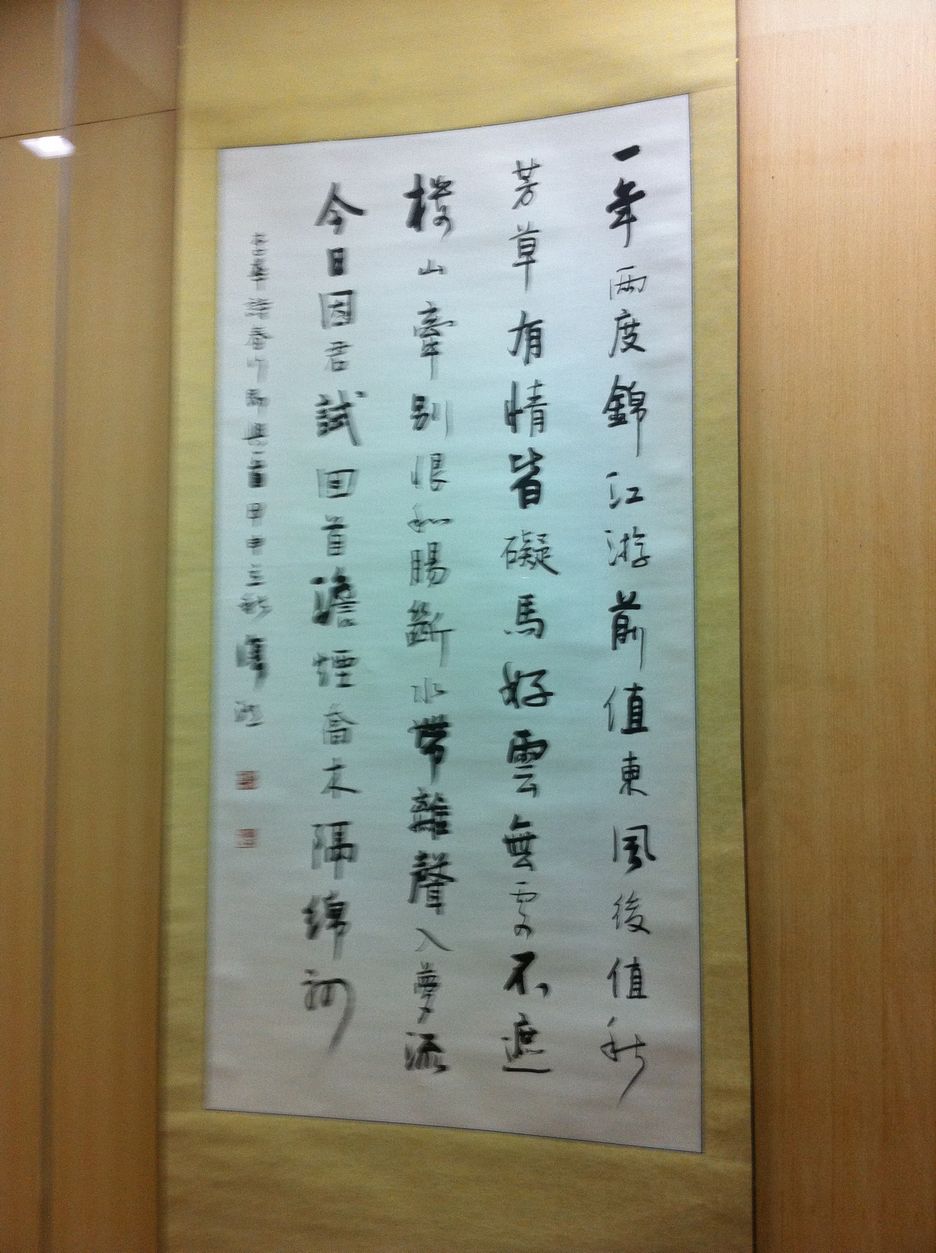 一年兩度錦江游前值東風後值秋
芳草有情皆礙馬好雲無處不遮
樓山牽別恨和腸斷水帶離聲入夢流
今日因君試回首澹煙喬木隔綿州
甲申立秋